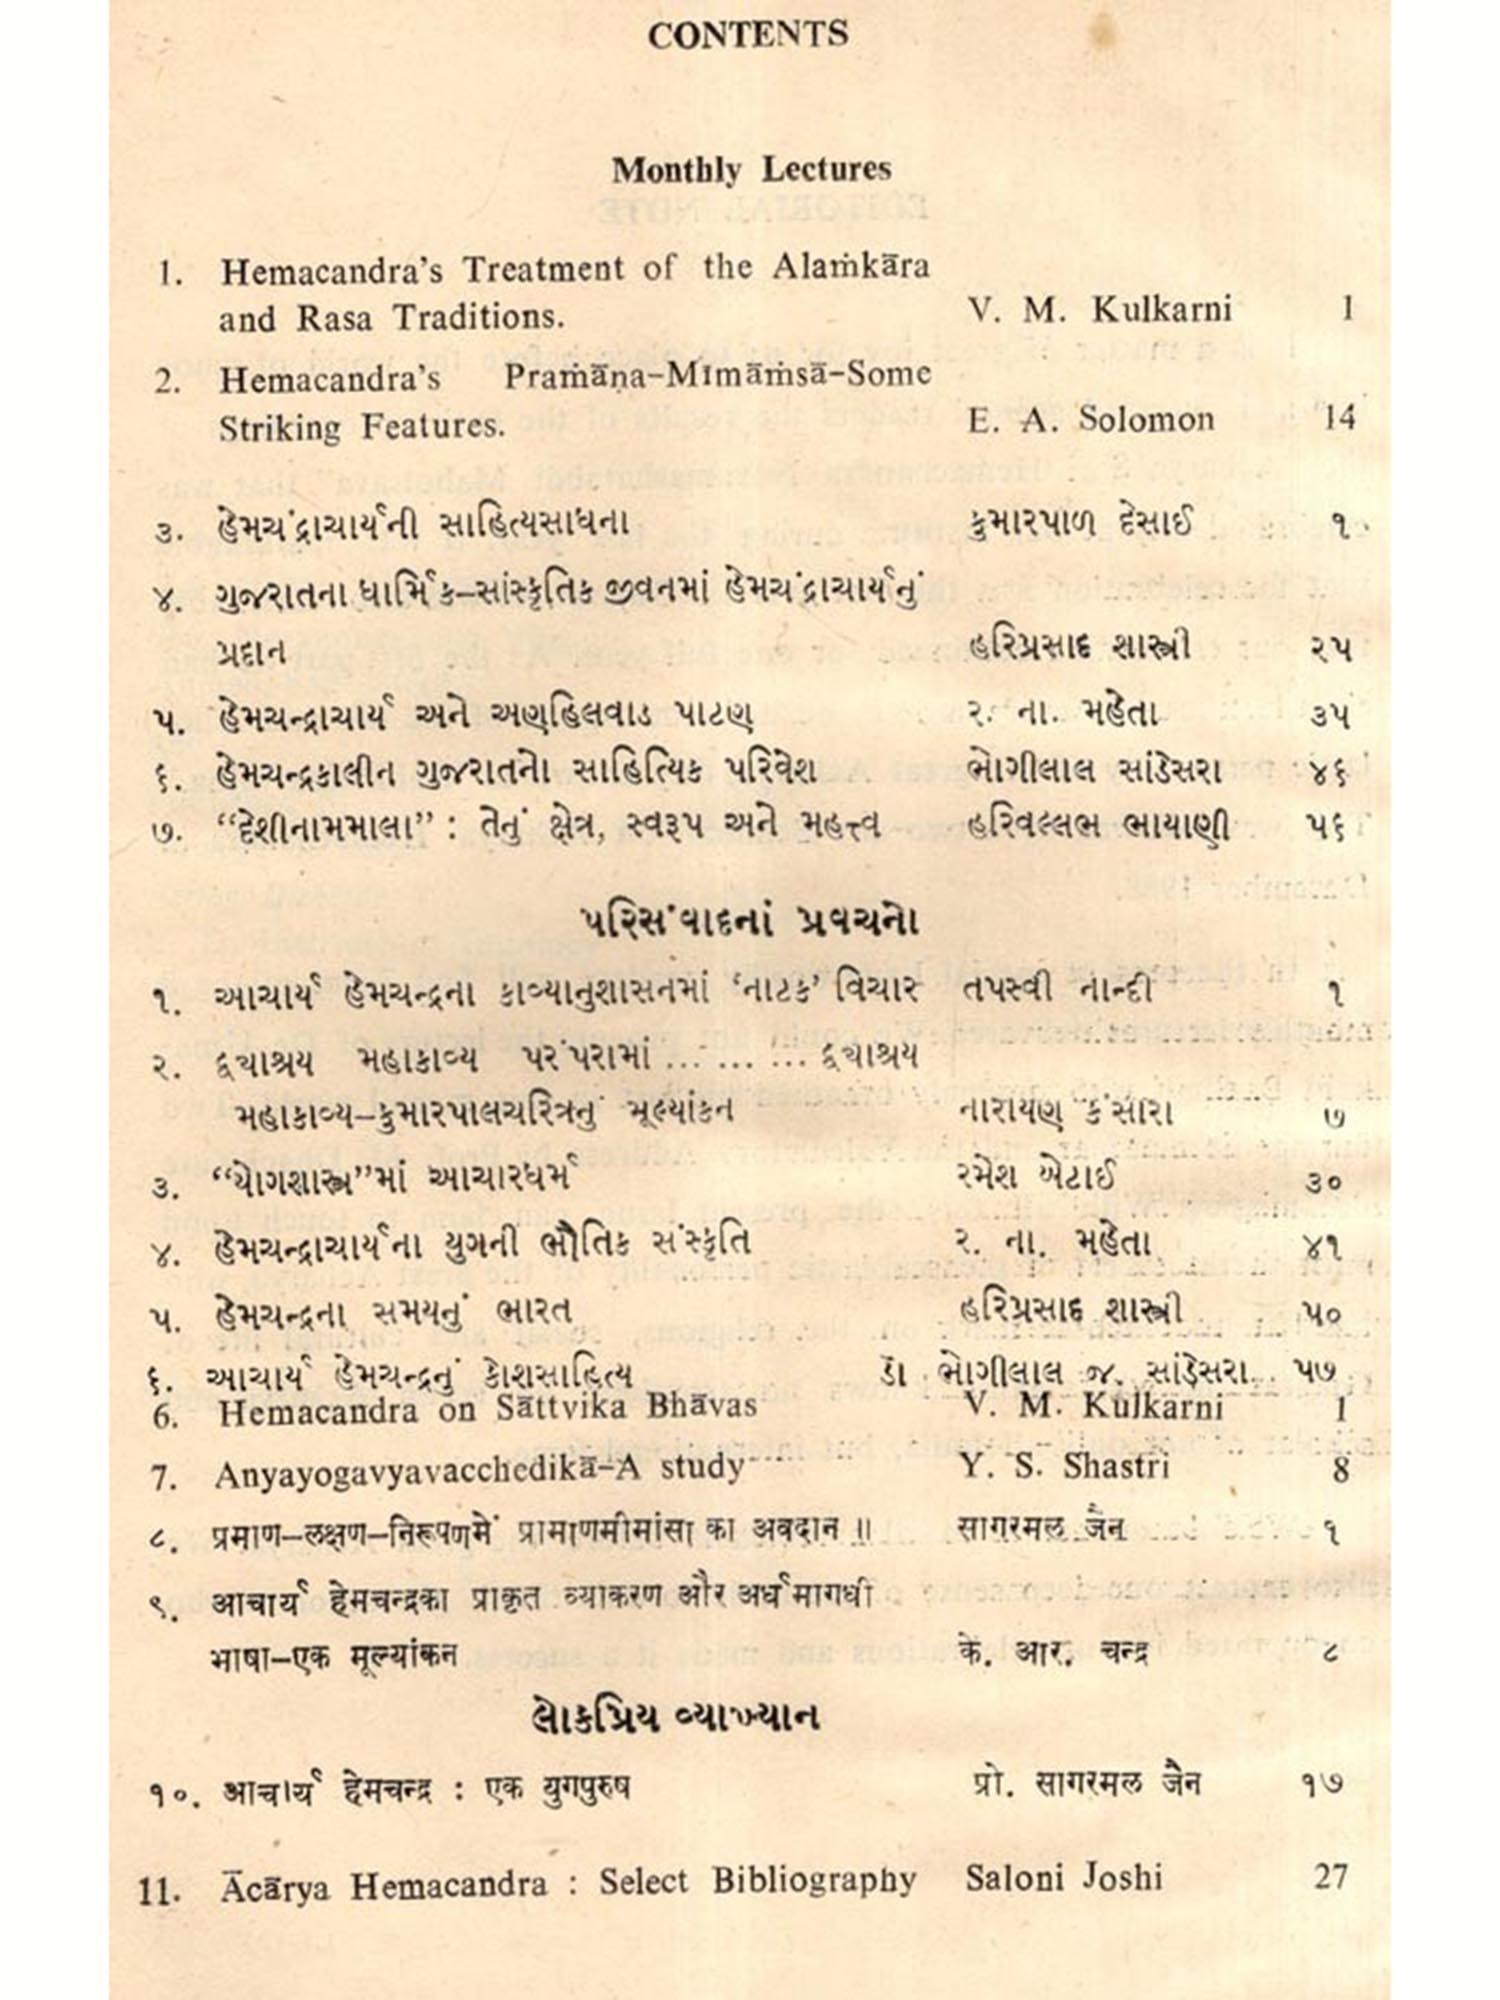 CONTENTS
Monthly Lectures
1. Hemacandra's Treatment of the Alaṁkāra
and Rasa Traditions. V. M. Kulkarni 1
2. Hemacandra's Pramāṇa-Mīmāṁsā-Some
Striking Features. E. A. Solomon 14
૩. હેમચંદ્રાચાર્યની સાહિત્યસાધના કુમારપાળ દેસાઈ ૧
૪. ગુજરાતના ધાર્મિક-સાંસ્કૃતિક જીવનમાં હેમચંદ્રાચાર્યનું
પ્રદાન હરિપ્રસાદ શાસ્ત્રી ૨૫
૫. હેમચન્દ્રાચાર્ય અને અણહિલવાડ પાટણ ર. ના. મહેતા ૩૫
૬. હેમચન્દ્રકાલીન ગુજરાતનો સાહિત્યિક પરિવેશ ભોગીલાલ સાંડેસરા ૪૬
૭. “દેશીનામમાલા” : તેનું ક્ષેત્ર, સ્વરૂપ અને મહત્ત્વ હરિવલ્લભ ભાયાણી ૫૬
પરિસંવાદનાં પ્રવચનો
૧. આચાર્ય હેમચન્દ્રના કાવ્યાનુશાસનમાં ‘નાટક’ વિચાર તપસ્વી નાન્દી ૧
૨. દ્વયાશ્રય મહાકાવ્ય પરંપરામાં ... ... ... દ્વયાશ્રય
મહાકાવ્ય-કુમારપાલચરિત્રનું મૂલ્યાંકન નારાયણ કંસારા ૭
૩. “યોગશાસ્ત્ર”માં આચારધર્મ રમેશ બેટાઈ ૩૦
૪. હેમચન્દ્રાચાર્યના યુગની ભૌતિક સંસ્કૃતિ ર. ના. મહેતા ૪૧
૫. હેમચન્દ્રના સમયનું ભારત હરિપ્રસાદ શાસ્ત્રી ૫૦
૬. આચાર્ય હેમચન્દ્રનું કોશસાહિત્ય ડૉ ભોગીલાલ જ. સાંડેસરા ૫૭
6. Hemacandra on Sāttvika Bhāvas V. M. Kulkarni 1
7. Anyayogavyavacchedikā-A study Y. S. Shastri 8
૮. प्रमाण-लक्षण-निरूपणमें प्रामाणमीमांसा का अवदान ॥ सागरमल जैन १
૯. आचार्य हेमचन्द्रका प्राकृत व्याकरण और अर्धमागधी
भाषा-एक मूल्यांकन के. आर. चन्द्र ८
લોકપ્રિય વ્યાખ્યાન
૧૦. आचार्य हेमचन्द्र : एक युगपुरुष प्रो. सागरमल जैन ૧૭
11. Ācārya Hemacandra : Select Bibliography Saloni Joshi 27